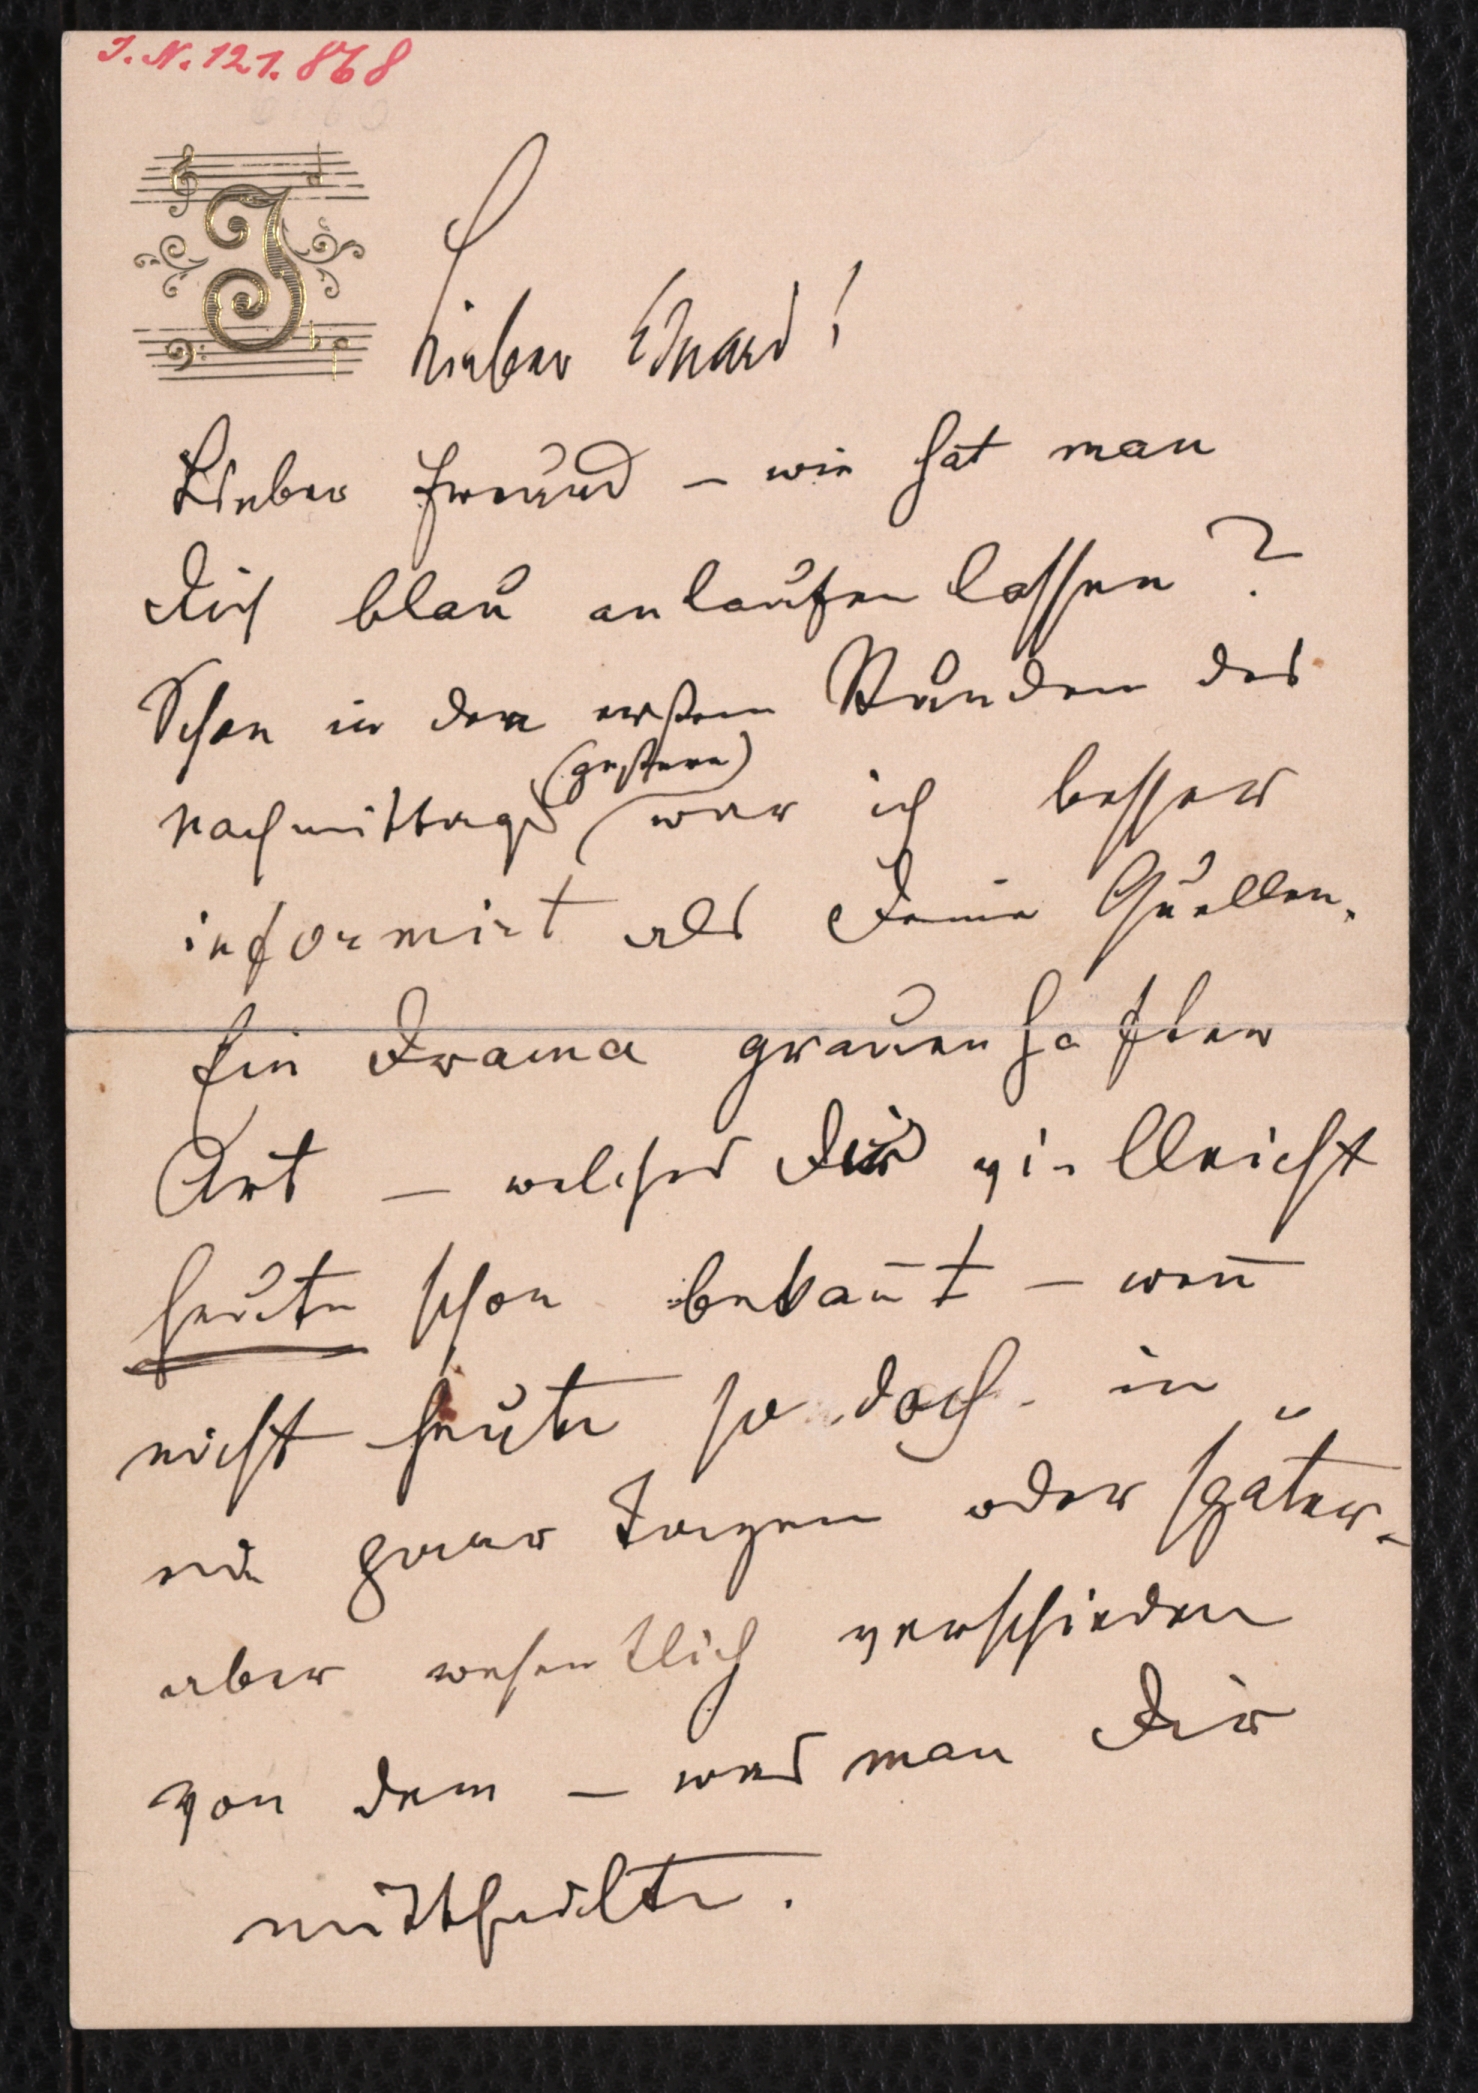 I. N. 121.868
J
Lieber Eduard!
Lieber Freund – wie hat man
Dich blau anlaufen lassen?
Schon in den ersten Stunden des
(gestern)
nachmittags war ich besser
informirt als Deine Quellen.
Ein Drama grauenhafter
Art – welches Dir vielleicht
heute schon bekan̄t – wen̄
nicht heute so doch in
ein paar Tagen oder später.
aber wesentlich verschieden
von dem – was man Dir
mittheilte.